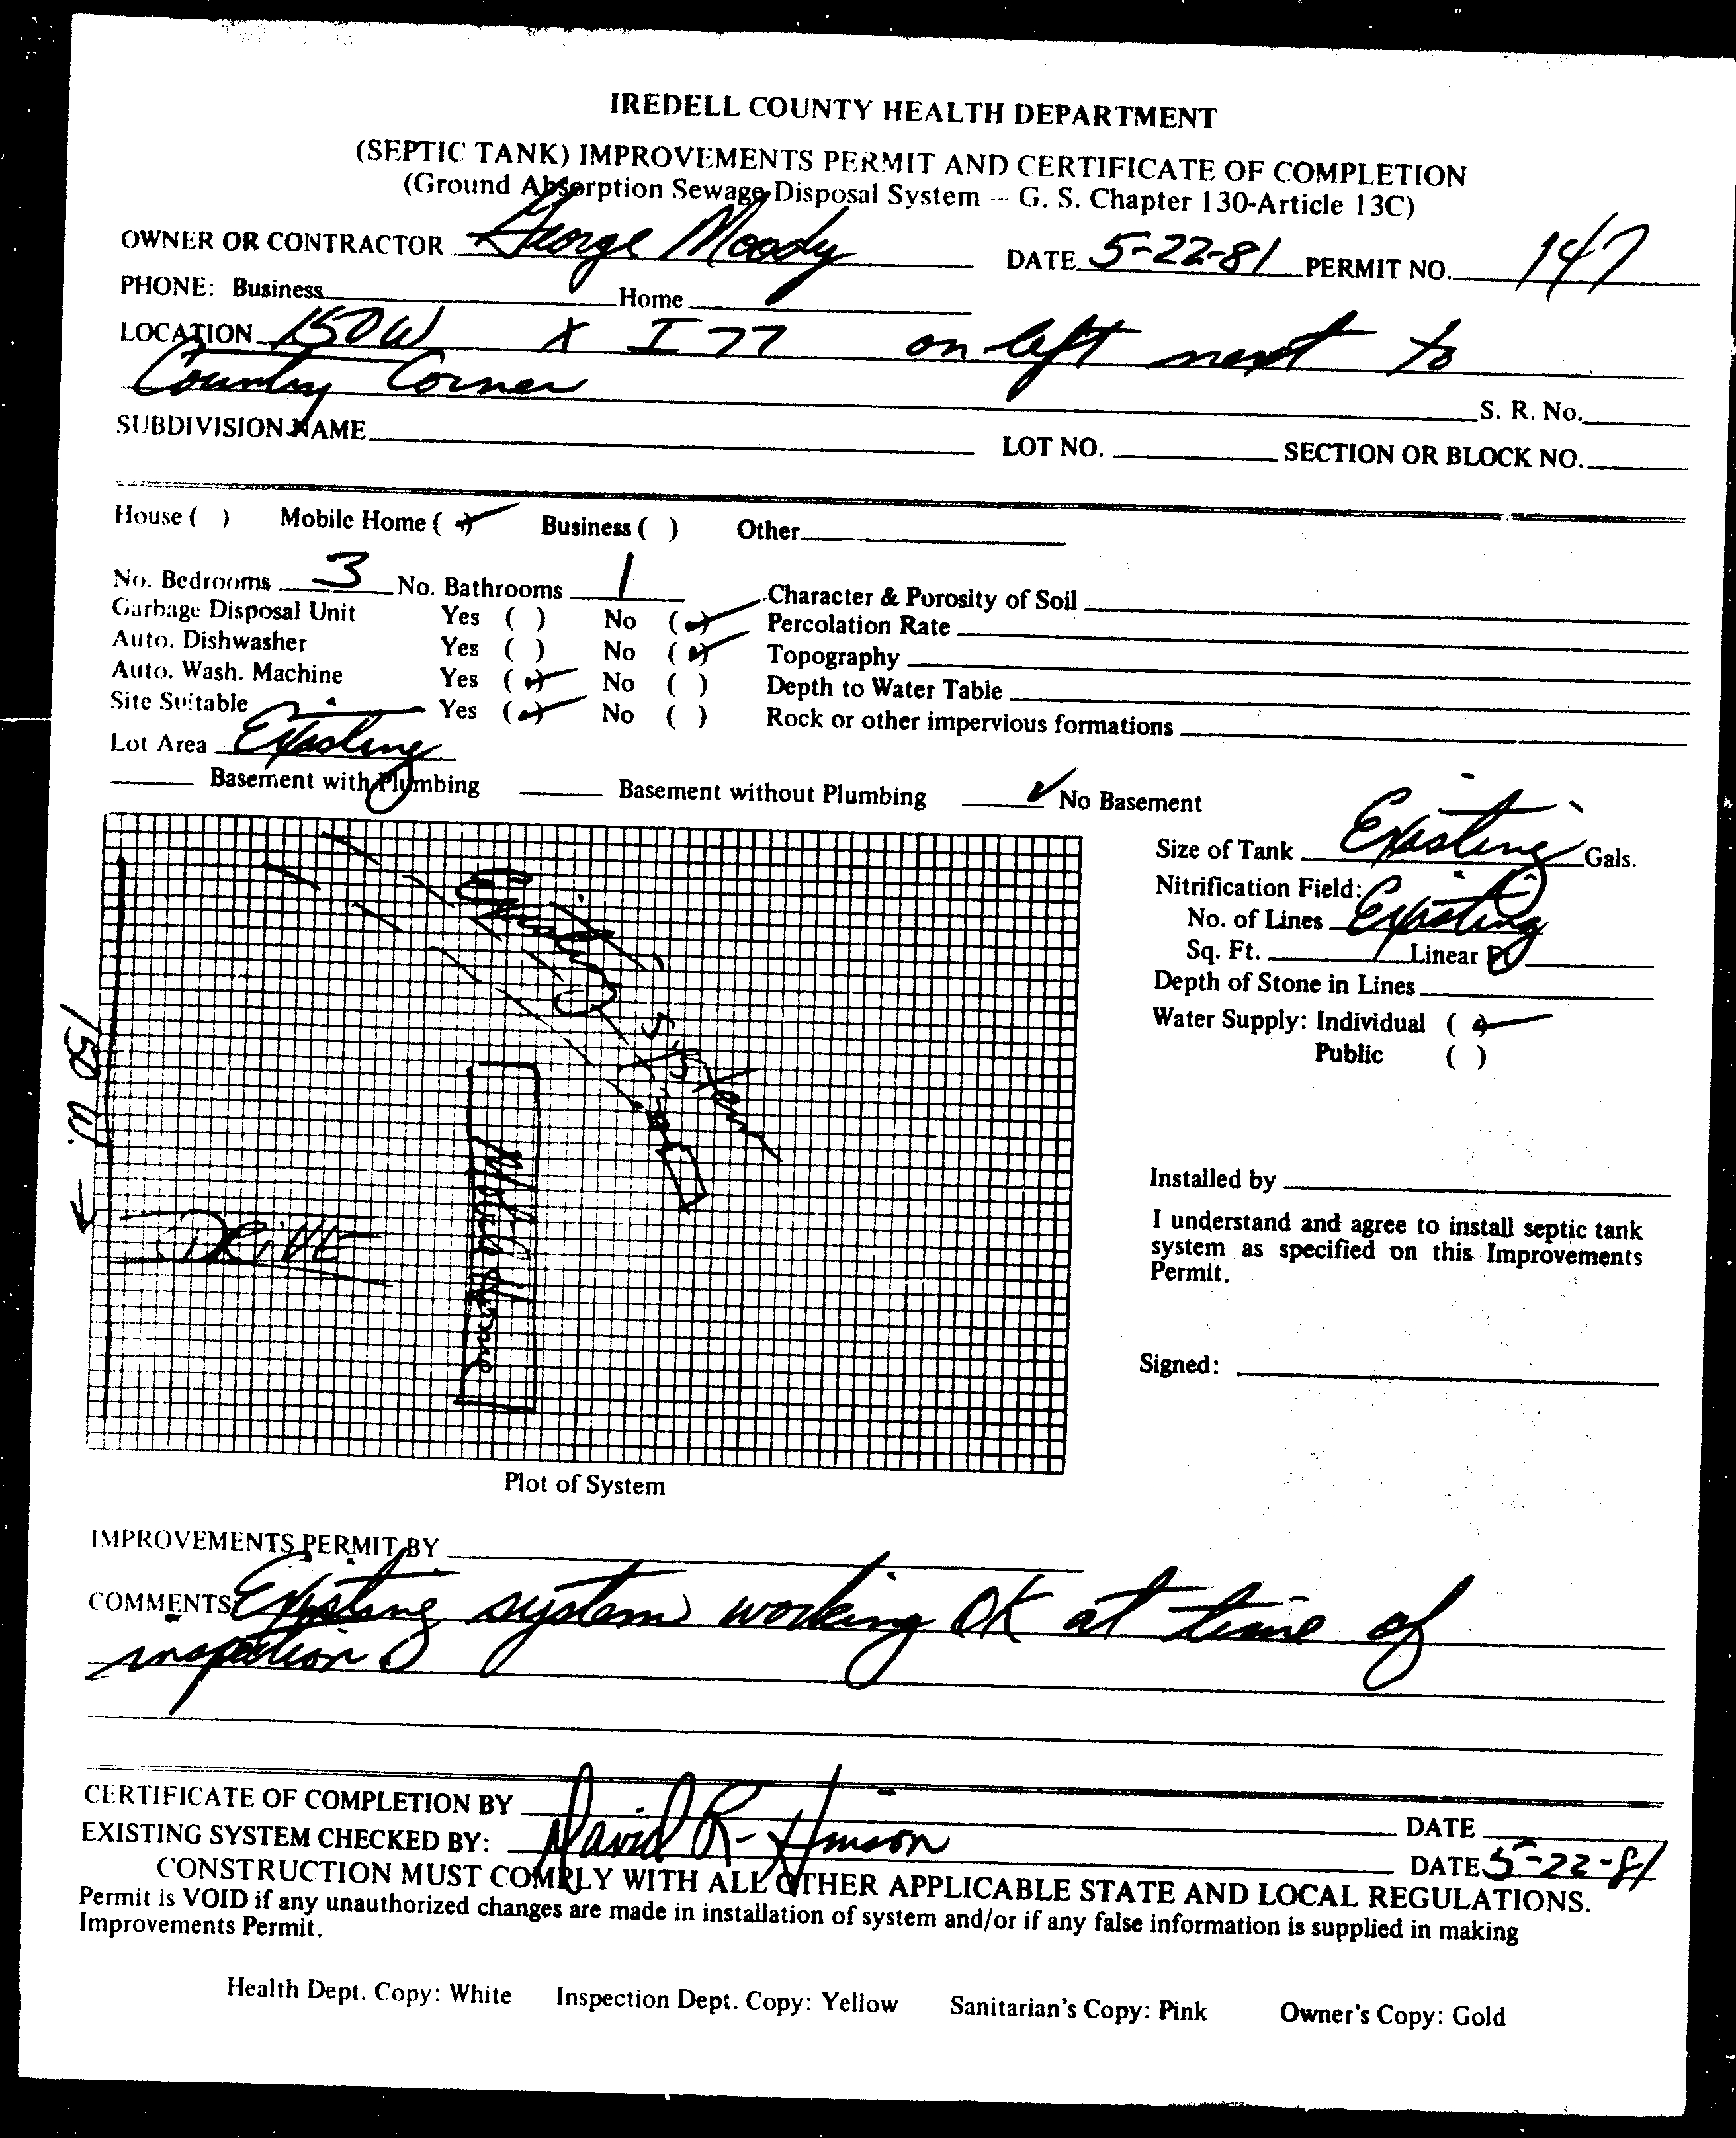 IREDELL COUNTY HEALTH DEPARTMENT
(SEPTIC TANK) IMPROVEMENTS PERMIT AND CERTIFICATE OF COMPLETION
(Ground Absorption Sewage Disposal System -- G. S. Chapter 130-Article 13C)
OWNER OR CONTRACTOR George Moody DATE 5-22-81 PERMIT NO. 147
PHONE: Business Home
LOCATION 150 W X I 77 on left next to
Country Corner S. R. No.
SUBDIVISION NAME LOT NO. SECTION OR BLOCK NO.
House ( ) Mobile Home (✓) Business ( ) Other
No. Bedrooms 3 No. Bathrooms 1 Character & Porosity of Soil
Garbage Disposal Unit Yes ( ) No (✓) Percolation Rate
Auto. Dishwasher Yes ( ) No (✓) Topography
Auto. Wash. Machine Yes (✓) No ( ) Depth to Water Table
Site Suitable Yes (✓) No ( ) Rock or other impervious formations
Lot Area Existing
Basement with Plumbing Basement without Plumbing ✓ No Basement
Size of Tank Existing Gals.
Nitrification Field:
No. of Lines Existing
Sq. Ft. Linear Ft.
Depth of Stone in Lines
Water Supply: Individual (✓)
Public ( )
Existing System
150 W.
Mobile Home
DRIVE
Installed by
I understand and agree to install septic tank
system as specified on this Improvements
Permit.
Signed:
Plot of System
IMPROVEMENTS PERMIT BY
COMMENTS: Existing system working OK at time of
inspection.
CERTIFICATE OF COMPLETION BY DATE
EXISTING SYSTEM CHECKED BY: David R. Hinson DATE 5-22-81
CONSTRUCTION MUST COMPLY WITH ALL OTHER APPLICABLE STATE AND LOCAL REGULATIONS.
Permit is VOID if any unauthorized changes are made in installation of system and/or if any false information is supplied in making
Improvements Permit.
Health Dept. Copy: White Inspection Dept. Copy: Yellow Sanitarian's Copy: Pink Owner's Copy: Gold